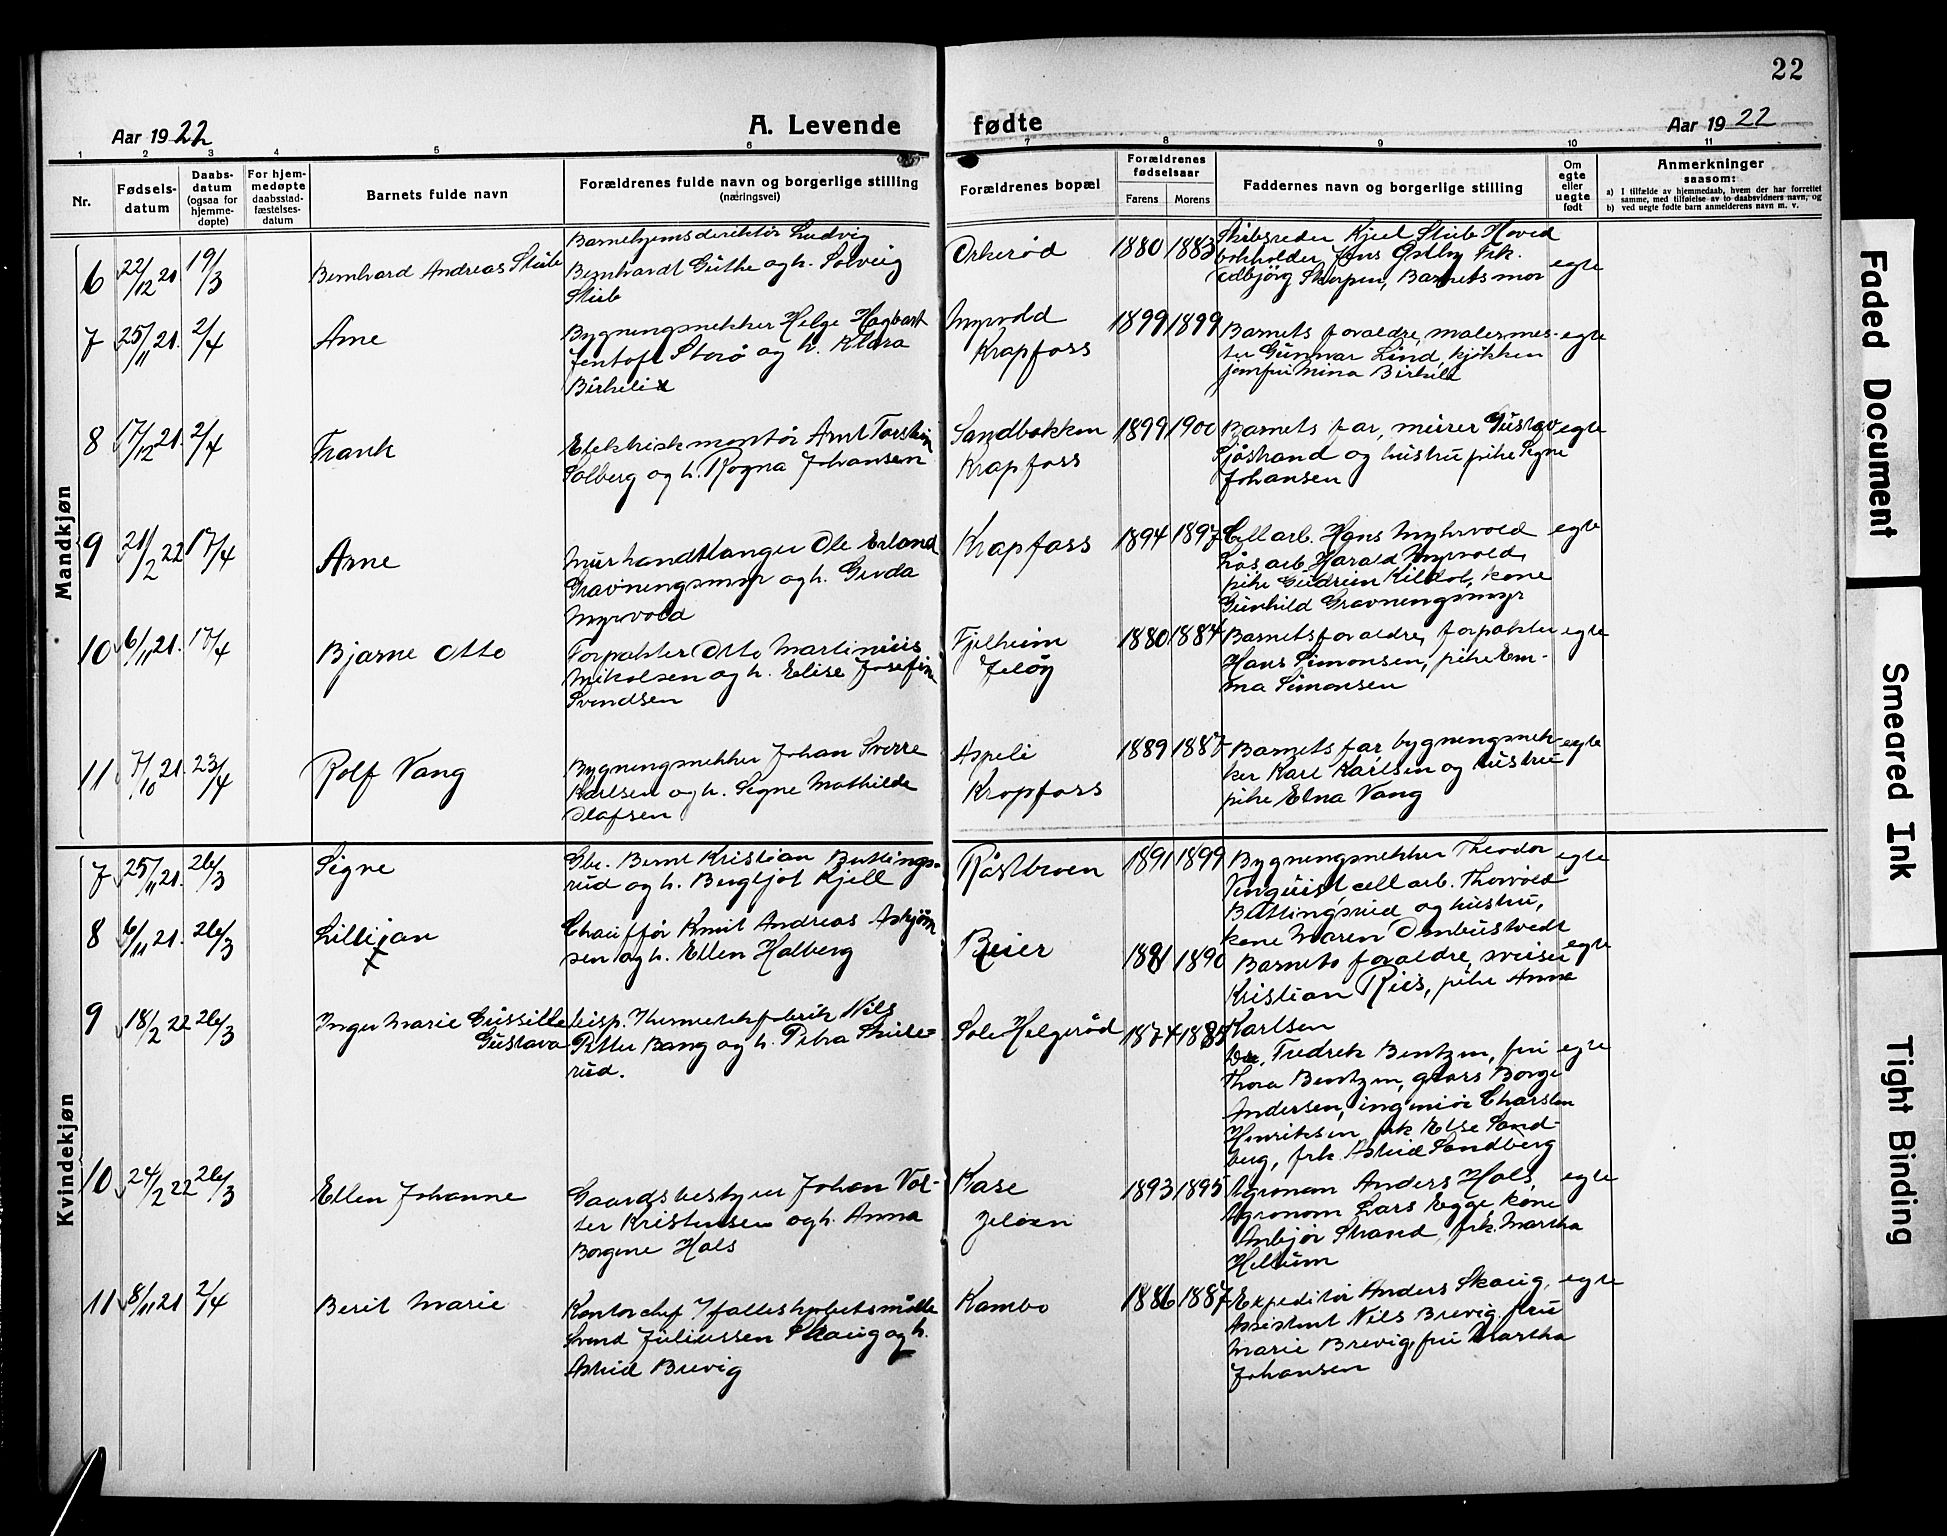 22
Aar 1922
A. Levende fødte
Aar 1922
1 2 3 4 5 6 7 8 9 10 11
Nr.
Fødselsdatum
Daabsdatum (ogsaa for hjemmedøpte)
For hjemmedøpte daabsstadfæstelsesdatum
Barnets fulde navn
Forældrenes fulde navn og borgerlige stilling (næringsvei)
Forældrenes bopæl
Forældrenes fødselsaar
Farens
Morens
Faddernes navn og borgerlige stilling
Om egte eller uegte født
Anmerkninger
saasom:
a) I tilfælde av hjemmedaab, hvem der har forrettet samme, med tilføielse av to daabsvidners navn, og
b) ved uegte fødte barn anmelderens navn m. v.
Mandkjøn
6 22/12 21 19/3
Bernhard Andreas Stub
Barnehjemsdirektør Ludvig
Bernhardt Guthe og h. Solveig
Stub
Orkerød
1880 1883
Skibsreder Kjeld Stub Hoved
bokholder Jens Østby Frk.
Edbjörg Skorpen, Barnets mor
egte
7 25/11 21. 2/4
Arne
Bygningsnekker Helge Hagbart
Jentoft Storø og h. Klara
Birkeli
Myrvold
Krapfoss
1899 1899
Barnets foraldre, malermes-
ter Gunnar Lind, kjøkken
jomfru Mina Birkeli
egte
8 17/12 21. 2/4
Frank
Elektriskmontør Arnt Torstein
Solberg og h. Rogna Johansen
Sandbakken
Krapfoss
1899 1900
Barnets far, murer Gustav
Sjøstrand og hustru pike Signe
Johansen
egte
9 21/2 22 17/4
Arne
Murhandtlanger Ole Erland
Gravningsmyr og h. Gerda
Myrvold
Krapfoss
1894 1897
Cell arb. Hans Myhrvold
Løs arb Harald Myrvold,
pike Gudrun Kilbol, kone
Gunhild Gravningsmyr
egte
10 6/11 21. 17/4
Bjarne Otto
Forpakter Otto Martinius
Mikalsen og h. Elise Josefin
Svendsen
Fjelheim
Jeløy
1880 1884
Barnets foraldre, forpakter
Hans Simonsen, pike Em-
ma Simonsen
egte
11 7/10 21. 23/4
Rolf Vang
Bygningsnekker Johan Sverre
Karlsen og h. Signe Mathilde
Olafsen
Aspeli
Krapfoss
1889 1887
Barnets far bygningsnek-
ker Karl Karlsen og hustru
pike Elna Vang
egte
Kvindekjøn
7 25/11 21. 26/3
Signe
Gbr. Bernt Kristian Buttings-
rud og h. Bergljot Kjell
Råstbroen
1891 1899
Bygningsnekker Theodor
Vinguist, cell arb. Thorvold
Buttingsrud og hustru,
kone Maren Ombustvedt
egte
8 6/11 21. 26/3
Lillijan
x
Chauffør Knut Andreas Asbjørn
sen og h. Ellen Halberg
Beier
1891 1890
Barnets foraldre, sveiser
Kristian Riis, pike Anna
Karlsen
egte
9 18/2 22 26/3
Inger Marie Gussille
Gustava
Disp. Hermetikfabrik Nils
Petter Bang og h. Petra Skule-
rud.
Sole Helgerød
1874 1885
Fredrik Bentzen, fru
Thora Bentzen, gross Borge
Andersen, ingeniør Charsten
Henriksen, frk Else Sand-
berg, frk. Astrid Sandberg
egte
10 24/2 22 26/3
Ellen Johanne
Gaardsbestyrer Johan Val-
ter Kristensen og h. Anna
Borgine Hals
Kase
Jeløen
1893 1895
Agronom Anders Hals,
Agronom Lars Egge, kone
Anbjør Strand, frk. Martha
Hellum
egte
11 8/11 21 2/4
Berit Marie
Kontorchef Fælleskjøpets mølle
Svend Juliussen Skaug og h.
Astrid Brevig
Kambo
1886 1887
Expeditør Anders Skaug,
Assistent Nils Brevig, fru
Marie Brevig, fru Martha
Johansen
egte
Faded Document
Smeared Ink
Tight Binding